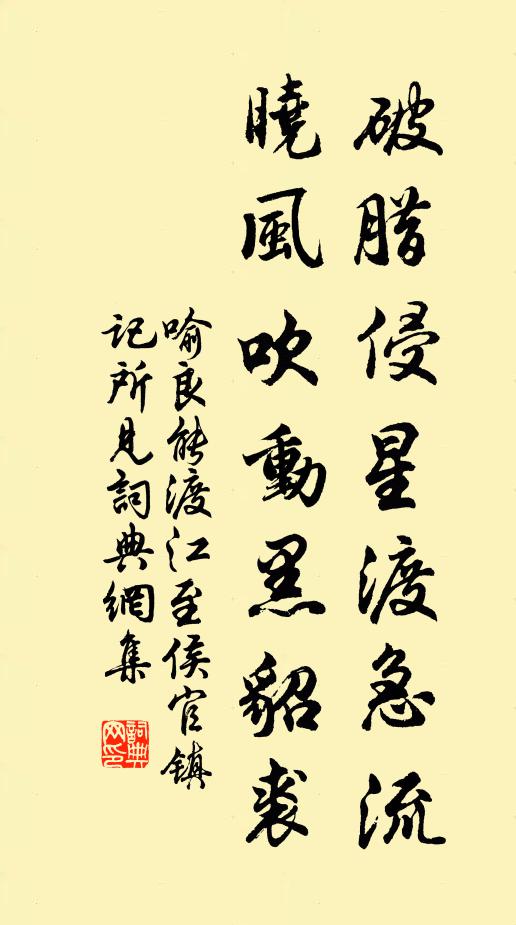 破腊侵星渡急流
曉風吹動黑貂裘
喻良能渡江至侯官鎮
記所見詞典網集
詞典
網印